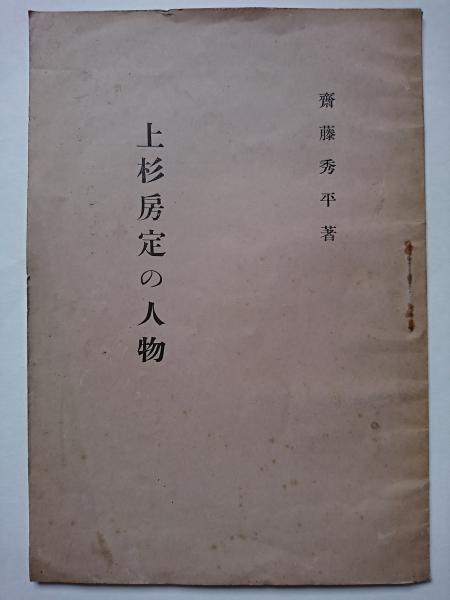 齋藤秀平著
上杉房定の人物